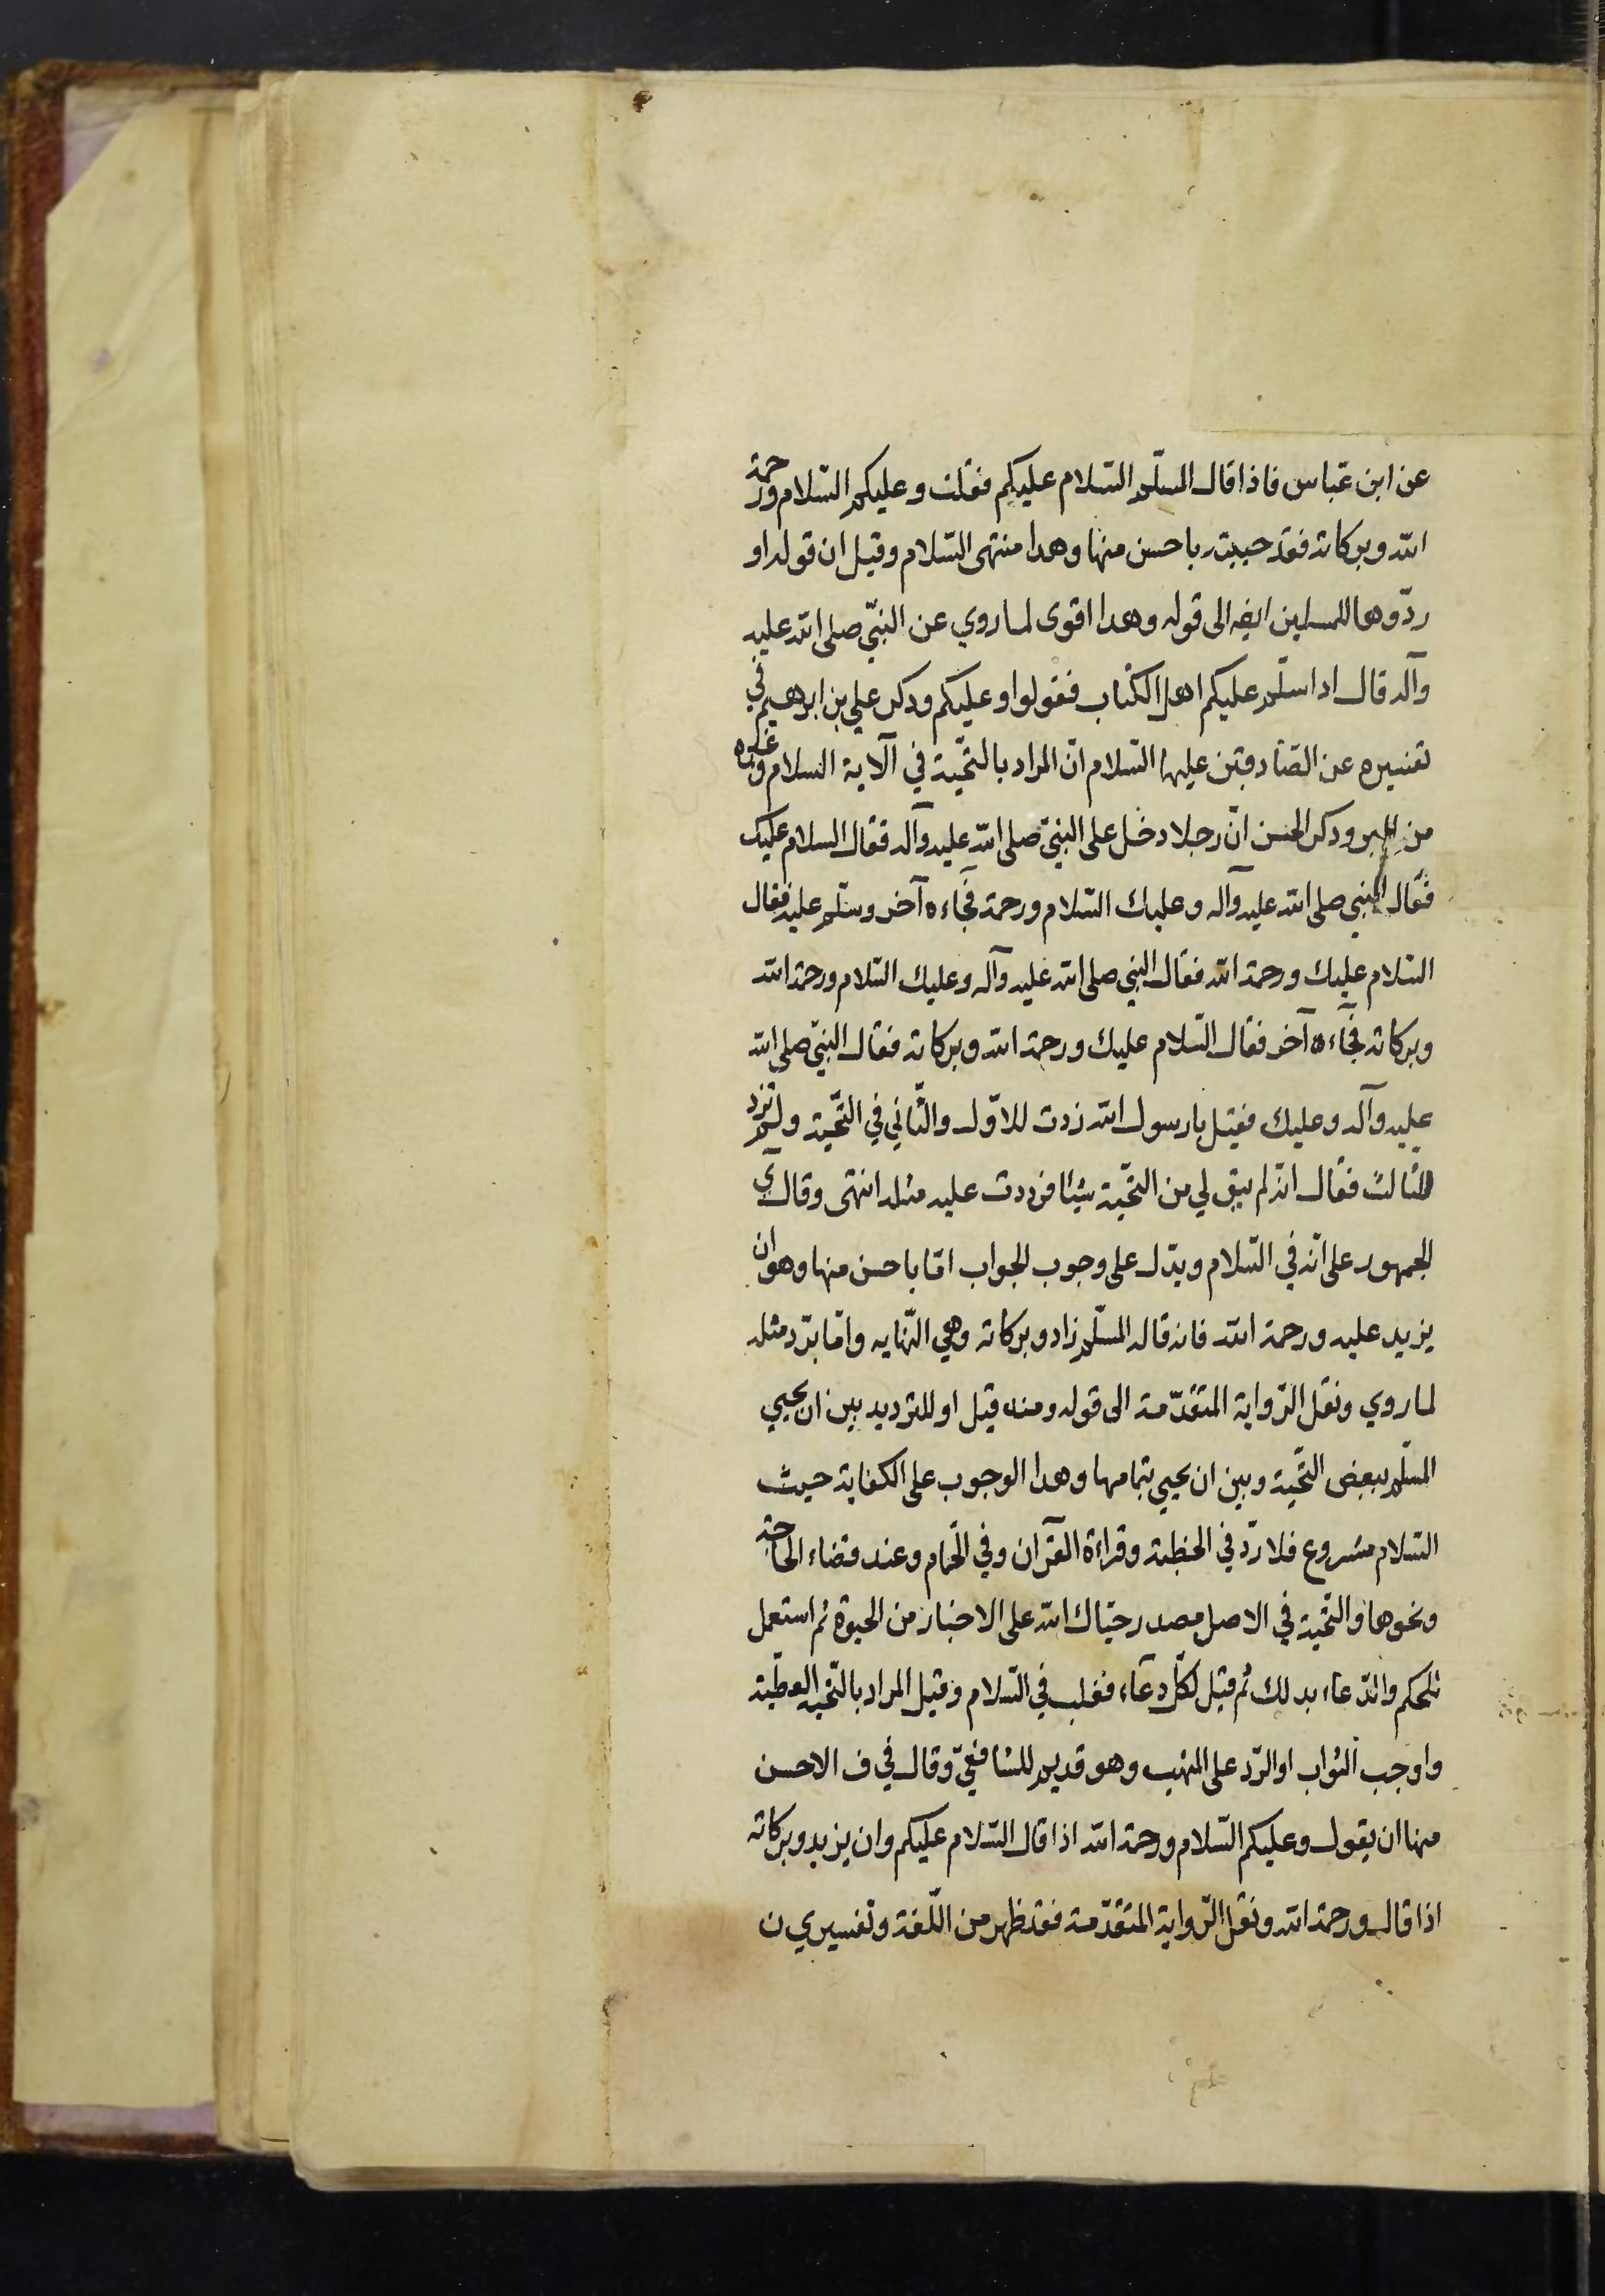 عن ابن عبّاس فاذا قال المسلّم السّلام عليكم فقلت وعليكم السّلام ورحمة
الله وبركاته فقد حييته باحسن منها وهذا منتهى السّلام وقيل ان قوله او
ردّوها للمسلمين ايضه الى قوله وهذا اقوى لما روي عن النبيّ صلى الله عليه
وآله قال اذا سلّم عليكم اهل الكتاب فقولوا وعليكم وذكر علي بن ابرهيم في
تفسيره عن الصّادقين عليهما السّلام انّ المراد بالتحيّة في الآية السلام وغيره
من البر وذكر الحسن انّ رجلا دخل على النبيّ صلى الله عليه وآله فقال السلام عليك
فقال النبي صلى الله عليه وآله وعليك السّلام ورحمة فجاءه آخر وسلّم عليه فقال
السّلام عليك ورحمة الله فقال النبي صلى الله عليه وآله وعليك السّلام ورحمة الله
وبركاته فجاءه آخر فقال السّلام عليك ورحمة الله وبركاته فقال النبيّ صلى الله
عليه وآله وعليك فقيل يا رسول الله زدت للاوّل والثّاني في التّحيّة ولم تزد
للثالث فقال انه لم يبق لي من التحيّة شيئا فرددت عليه مثله انتهى وقال ي
الجمهور على انّه في السّلام ويدّل على وجوب الجواب امّا باحسن منها وهو ان
يزيد عليه ورحمة الله فان قاله المسلّم زاد وبركاته وهي النّهايه وامّا بردّ مثله
لما روي ونقل الرّواية المتقدّمة الى قوله ومنه قيل او للترديد بين ان يحيي
المسلّم ببعض التحيّة وبين ان يحيي بتمامها وهذا الوجوب على الكفاية حيث
السّلام مشروع فلا ردّ في الخطبة وقراءة القرآن وفي الحمام وعند قضاء الحاجة
ونحوها والتحيّة في الاصل مصدر حيّاك الله على الاخبار من الحيوة ثم استعمل
للحكم والدّعاء بذلك ثم قيل لكلّ دعاء فغلب في السّلام وقيل المراد بالتّحيّة العطيّة
واوجب الثواب او الرّد على المتهب وهو قديم للشافعيّ وقال في ف الاحسن
منها ان يقول وعليكم السّلام ورحمة الله اذا قال السّلام عليكم وان يزيد وبركاته
اذا قال ورحمة الله ونقل الرّواية المتقدّمة فقد ظهر من اللّغة وتفسيري ن